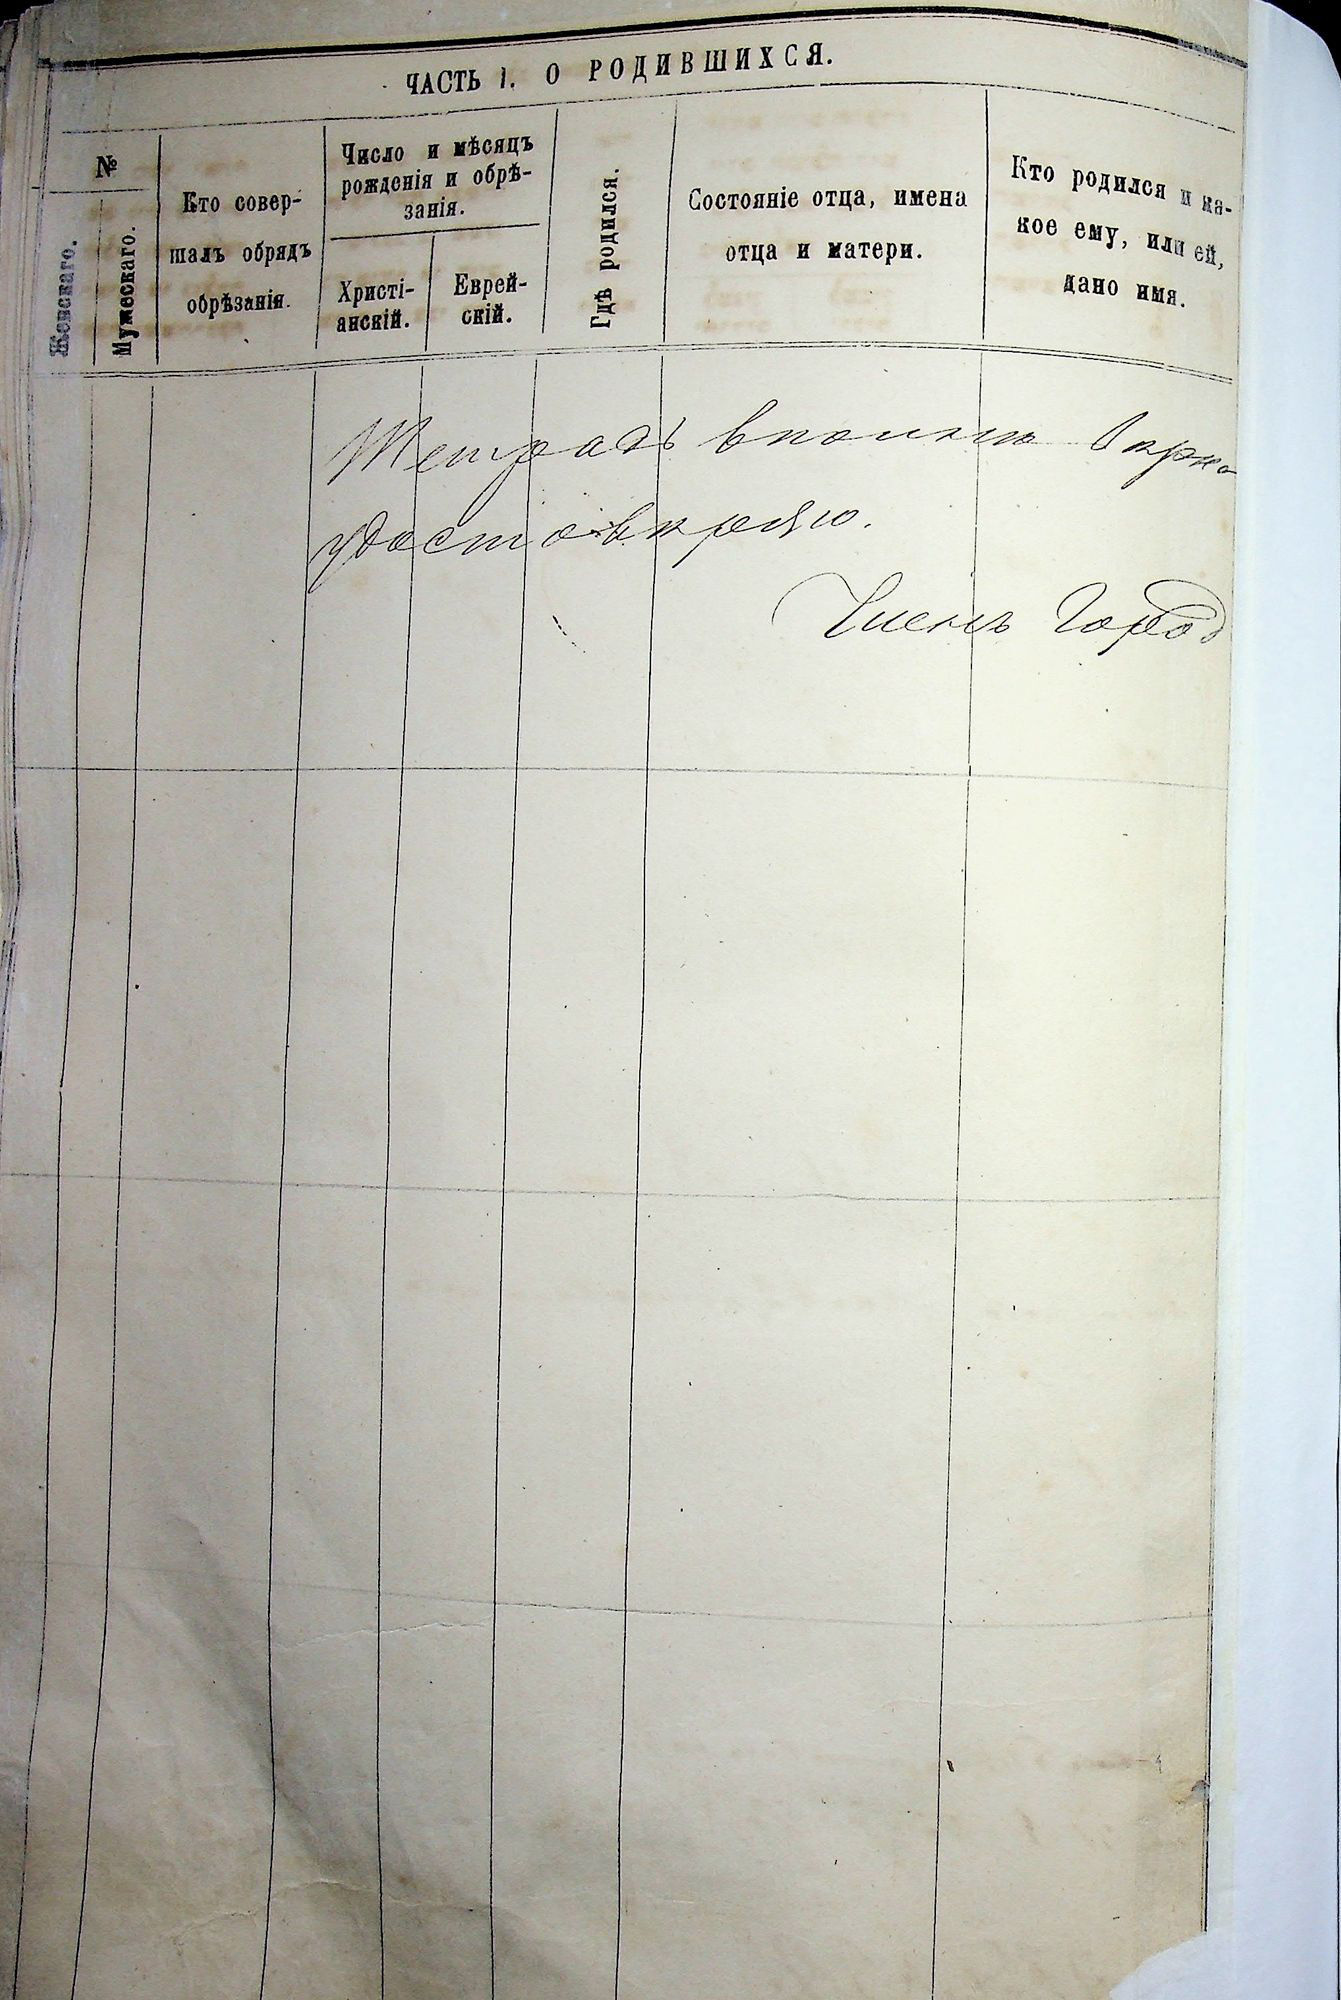 ЧАСТЬ I. О РОДИВШИХСЯ.
№
Женскаго.
Мужескаго.
Кто совер-
шалъ обрядъ
обрѣзанія.
Число и мѣсяцъ
рожденія и обрѣ-
занія.
Христі-
анскій.
Еврей-
скій.
Гдѣ родился.
Состояніе отца, имена
отца и матери.
Кто родился и ка-
кое ему, или ей,
дано имя.
Тетрадь вполнѣ
удостовѣряю.
Членъ Город